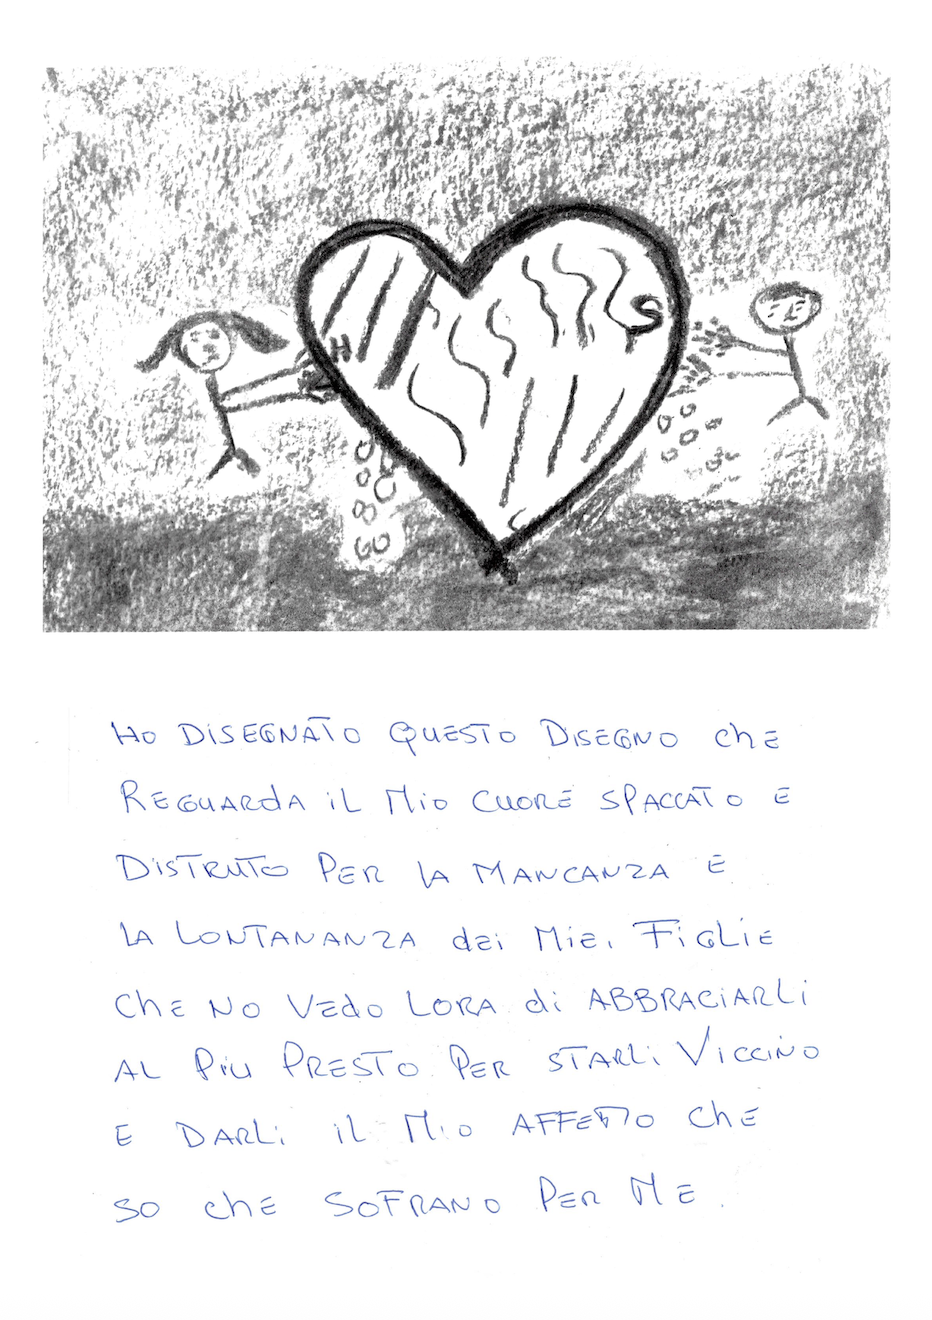 HO DISEGNATO QUESTO DISEGNO CHE
REGUARDA IL MIO CUORE SPACCATO E
DISTRUTO PER LA MANCANZA E
LA LONTANANZA DEI MIEI FIGLIE
CHE NO VEDO LORA DI ABBRACIARLI
AL PIU PRESTO PER STARLI VICCINO
E DARLI IL MIO AFFETTO CHE
SO CHE SOFRANO PER ME.